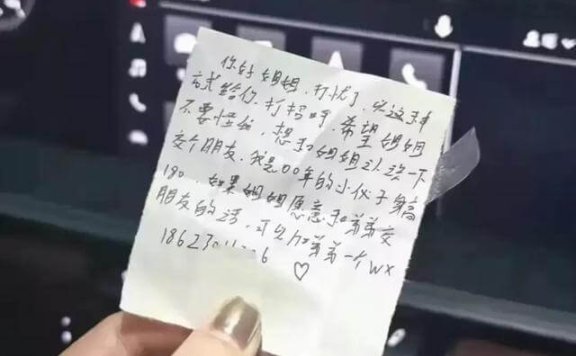 你好姐姐，打扰了，以这种
方式给你打招呼希望姐姐
不要怪我，想和姐姐认识一下
交个朋友，我是00年的小伙子身高
180，如果姐姐愿意和弟弟交
朋友的话，可以加弟弟一个WX
18623 6 ♡